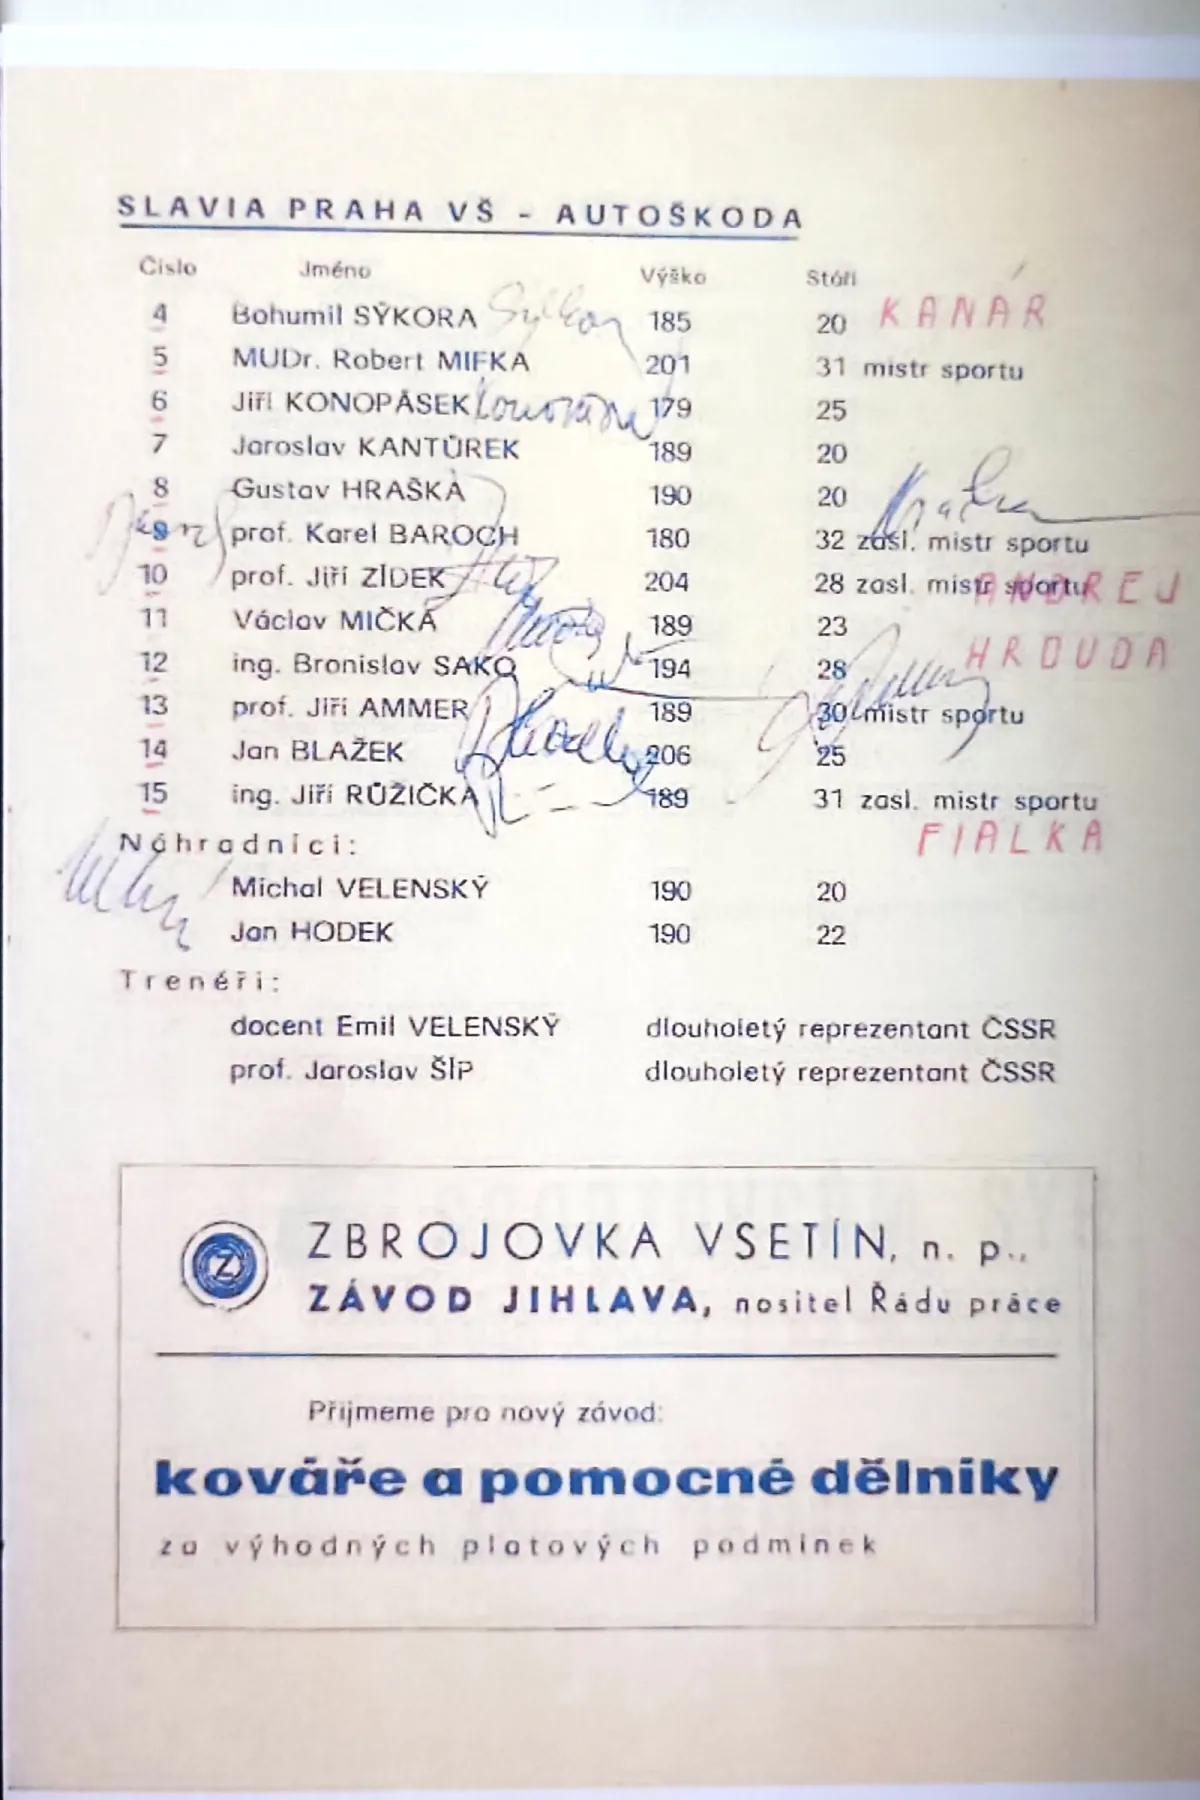 SLAVIA PRAHA VŠ - AUTOŠKODA
Číslo Jméno Výška Stáří
4 Bohumil SÝKORA Sýkora 185 20 KANÁR
5 MUDr. Robert MIFKA 201 31 mistr sportu
6 Jiří KONOPÁSEK 179 25
7 Jaroslav KANTŮREK 189 20
8 Gustav HRAŠKA 190 20
9 prof. Karel BAROCH 180 32 zasl. mistr sportu
10 prof. Jiří ZÍDEK 204 28 zasl. mistr sportu ANDREJ
11 Václav MIČKA 189 23
12 ing. Bronislav SAKO 194 28 HROUDA
13 prof. Jiří AMMER 189 30 mistr sportu
14 Jan BLAŽEK 206 25
15 ing. Jiří RŮŽIČKA 189 31 zasl. mistr sportu
FIALKA
Náhradníci:
Michal VELENSKÝ 190 20
Jan HODEK 190 22
Trenéři:
docent Emil VELENSKÝ dlouholetý reprezentant ČSSR
prof. Jaroslav ŠÍP dlouholetý reprezentant ČSSR
Z ZBROJOVKA VSETÍN, n. p.,
ZÁVOD JIHLAVA, nositel Řádu práce
Přijmeme pro nový závod:
kováře a pomocné dělníky
za výhodných platových podmínek